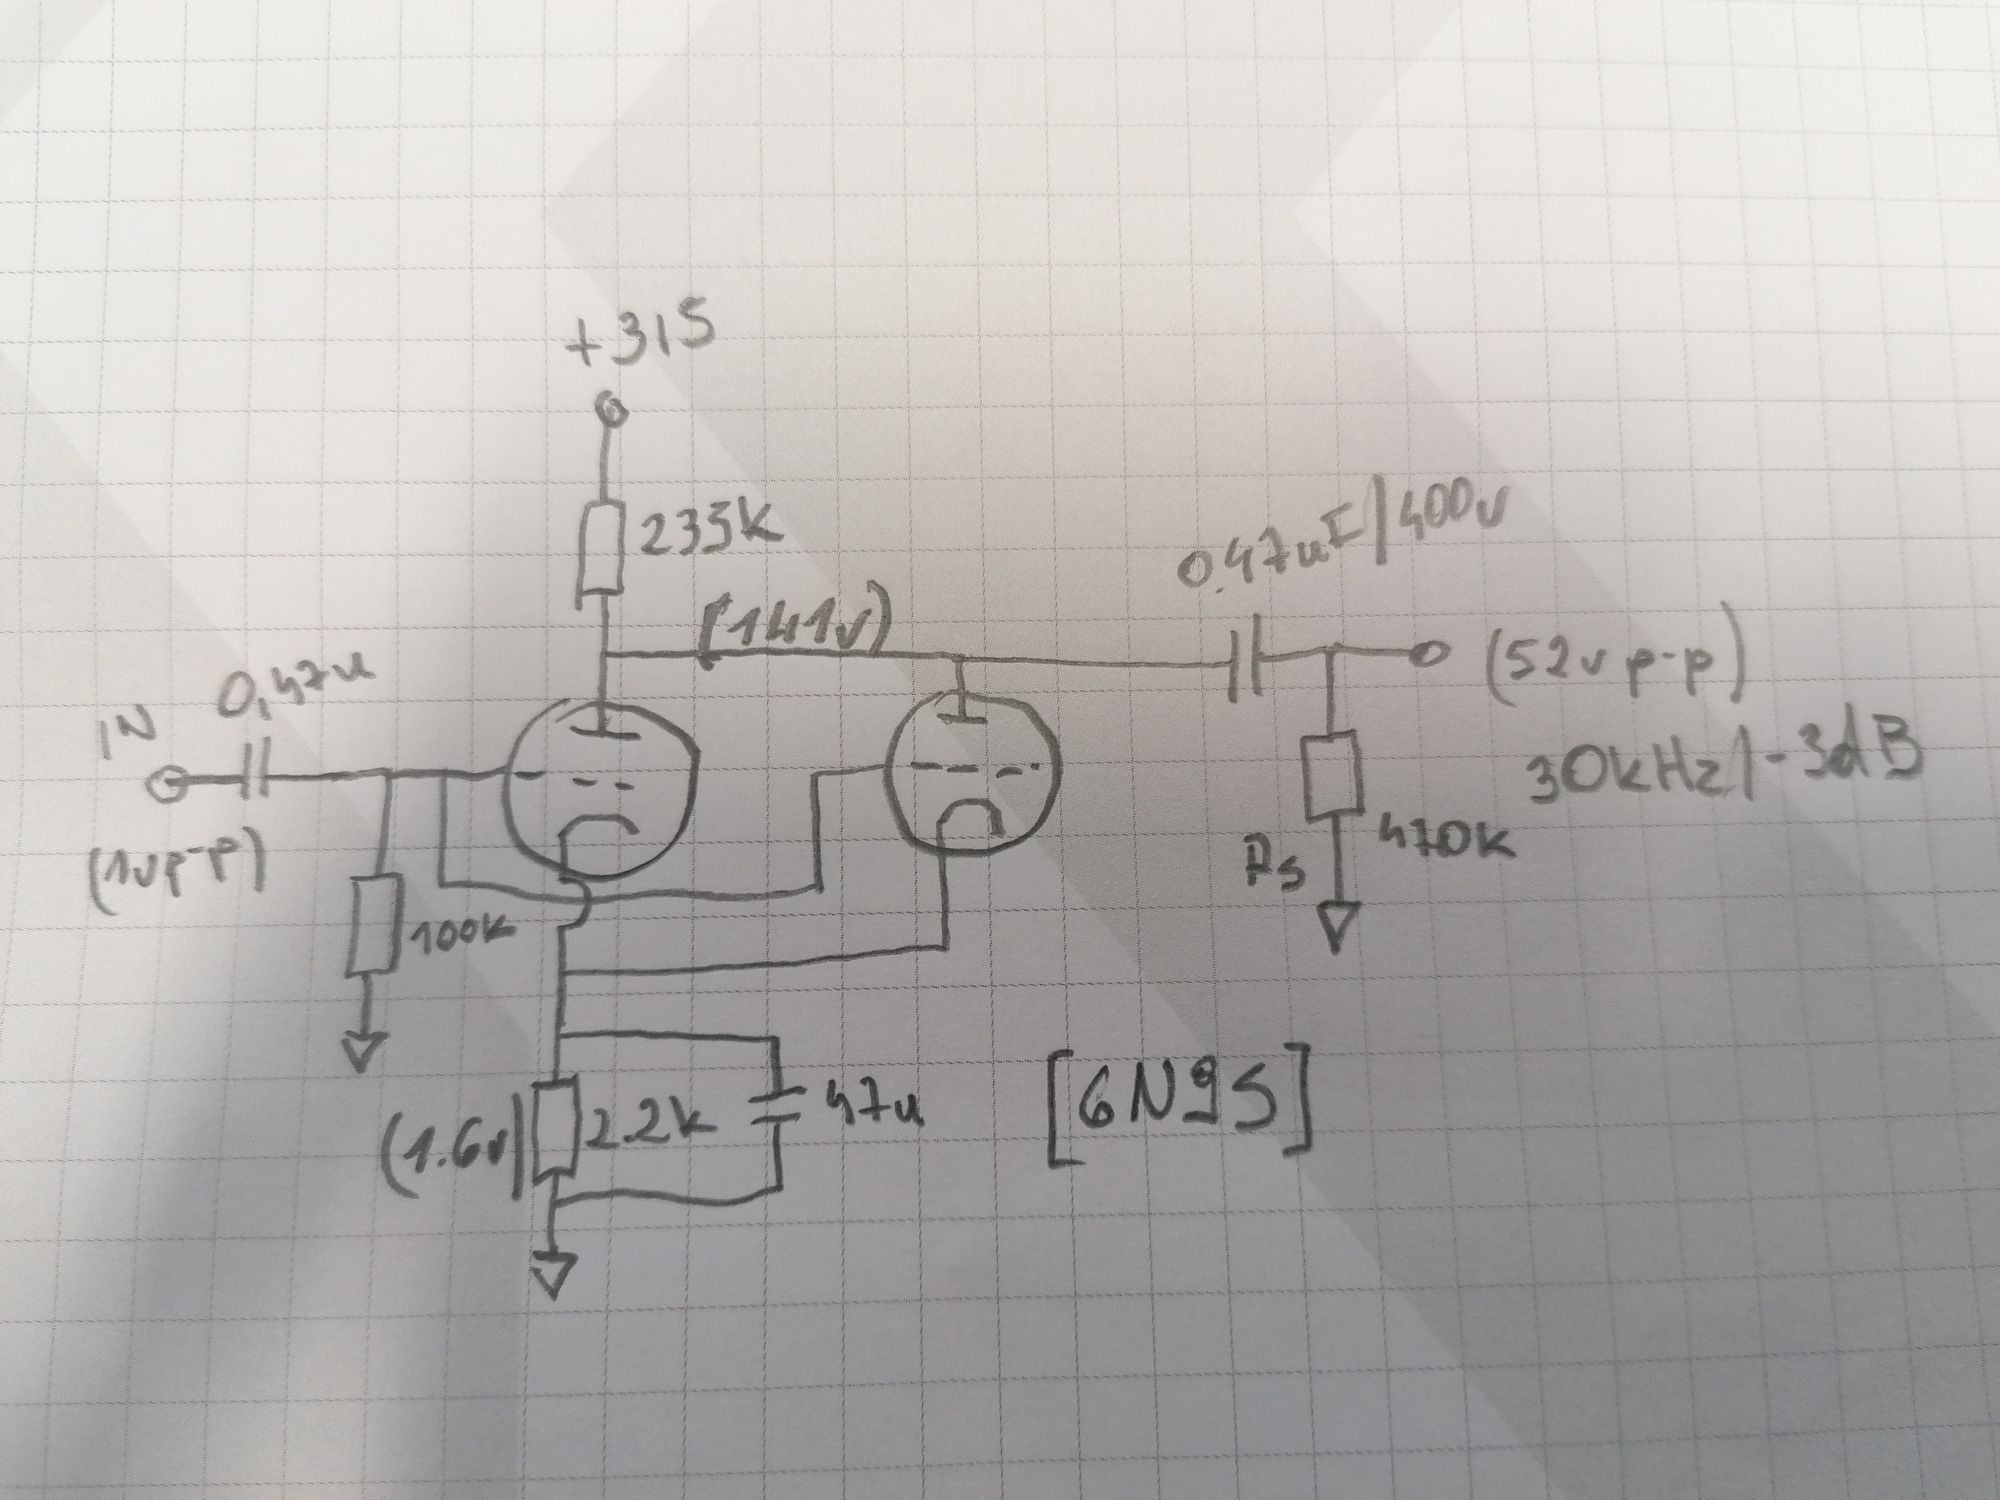 +315
233k
0.47uF/400v
(141v)
0,47u
IN
(52v p-p)
30kHz/-3dB
(1vp-p)
470k
100k
[6N9S]
(1.6v)
2.2k
47u